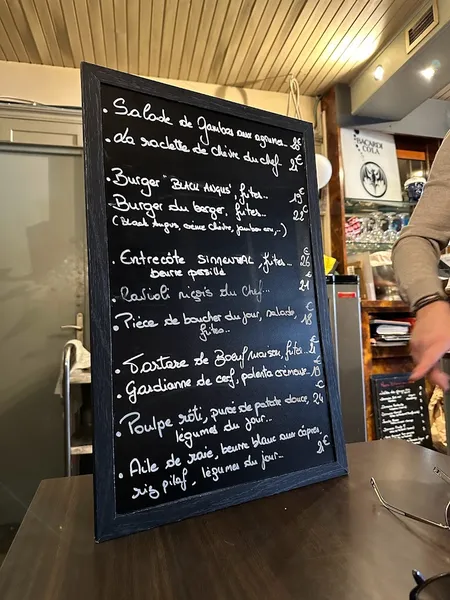 . Salade de Gambas aux agrumes
. La raclette de chèvre du chef 21€
. Burger "BLACK ANGUS", frites... 19€
. Burger du berger, frites... 22€
(Black Angus, crème chèvre, jambon cru,..)
. Entrecôte SIMMENTAL, frites... 26€
beurre persillé
. Ravioli niçois du Chef... 21
. Pièce de boucher du jour, salade, 18€
frites...
. Tartare de Boeuf maison, frites... 21€
. Gardianne de cerf, polenta crémeuse 19€
. Poulpe rôti, purée de patate douce, 24€
légumes du jour...
. Aile de raie, beurre blanc aux câpres,
riz pilaf, légumes du jour... 21€
BACARDI
COLA